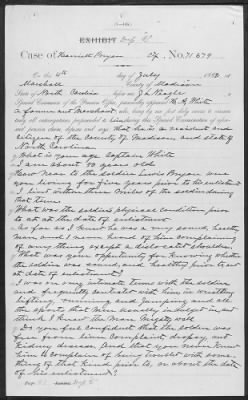 EXHIBIT
Case of Harriett Bryan No. 71,679
On this 4th day of July 1882, at
Marshall County of Madison
State of North Carolina before me, a
Special Examiner of the Pension Office, personally appeared White
a farmer and merchant who, being by me first duly sworn to answer
truly all interrogatories propounded to him during this Special Examination of afore-
said pension claim, deposes and says that he is a resident and
citizen of the County of Madison and state of
North Carolina
What is your age Captain White
I am about 50 years old
How near to the soldier Lewis Bryan were
you living for five years prior to his enlistment
I lived within three miles of the soldier during
that time
What was the soldiers physical condition prior
to at the date of enlistment
As far as I know he was a very sound, healthy
man and I never knew of him complaining
of any thing except a dislocated shoulder.
What was your opportunity for knowing whether
the soldier was sound, and healthy prior to and
at date of enlistment?
I was on very intimate terms with the soldier
and frequently contested with him in wrestling
lifting, running and jumping and all
the sports that men usually indulge in, and
think I knew the man
Do you feel confident that the soldier was
free from liver complaint dropsy, and
kidney disease, and that you never knew
him to complain of being troubled with some
thing of that kind prior to, or about the date
of his enlistment?